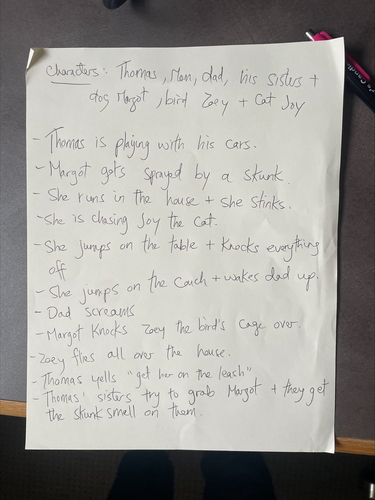 Characters: Thomas, Mom, dad, his sisters +
dog Margot, bird Zoey + Cat Joy
- Thomas is playing with his cars.
- Margot gets sprayed by a skunk.
- She runs in the house + she stinks.
- She is chasing Joy the cat.
- She jumps on the table + knocks everything
off
- She jumps on the couch + wakes dad up.
- Dad screams
- Margot knocks Zoey the bird's cage over.
- Zoey flies all over the house.
- Thomas yells "get her on the leash".
- Thomas' sisters try to grab Margot + they get
the skunk smell on them.